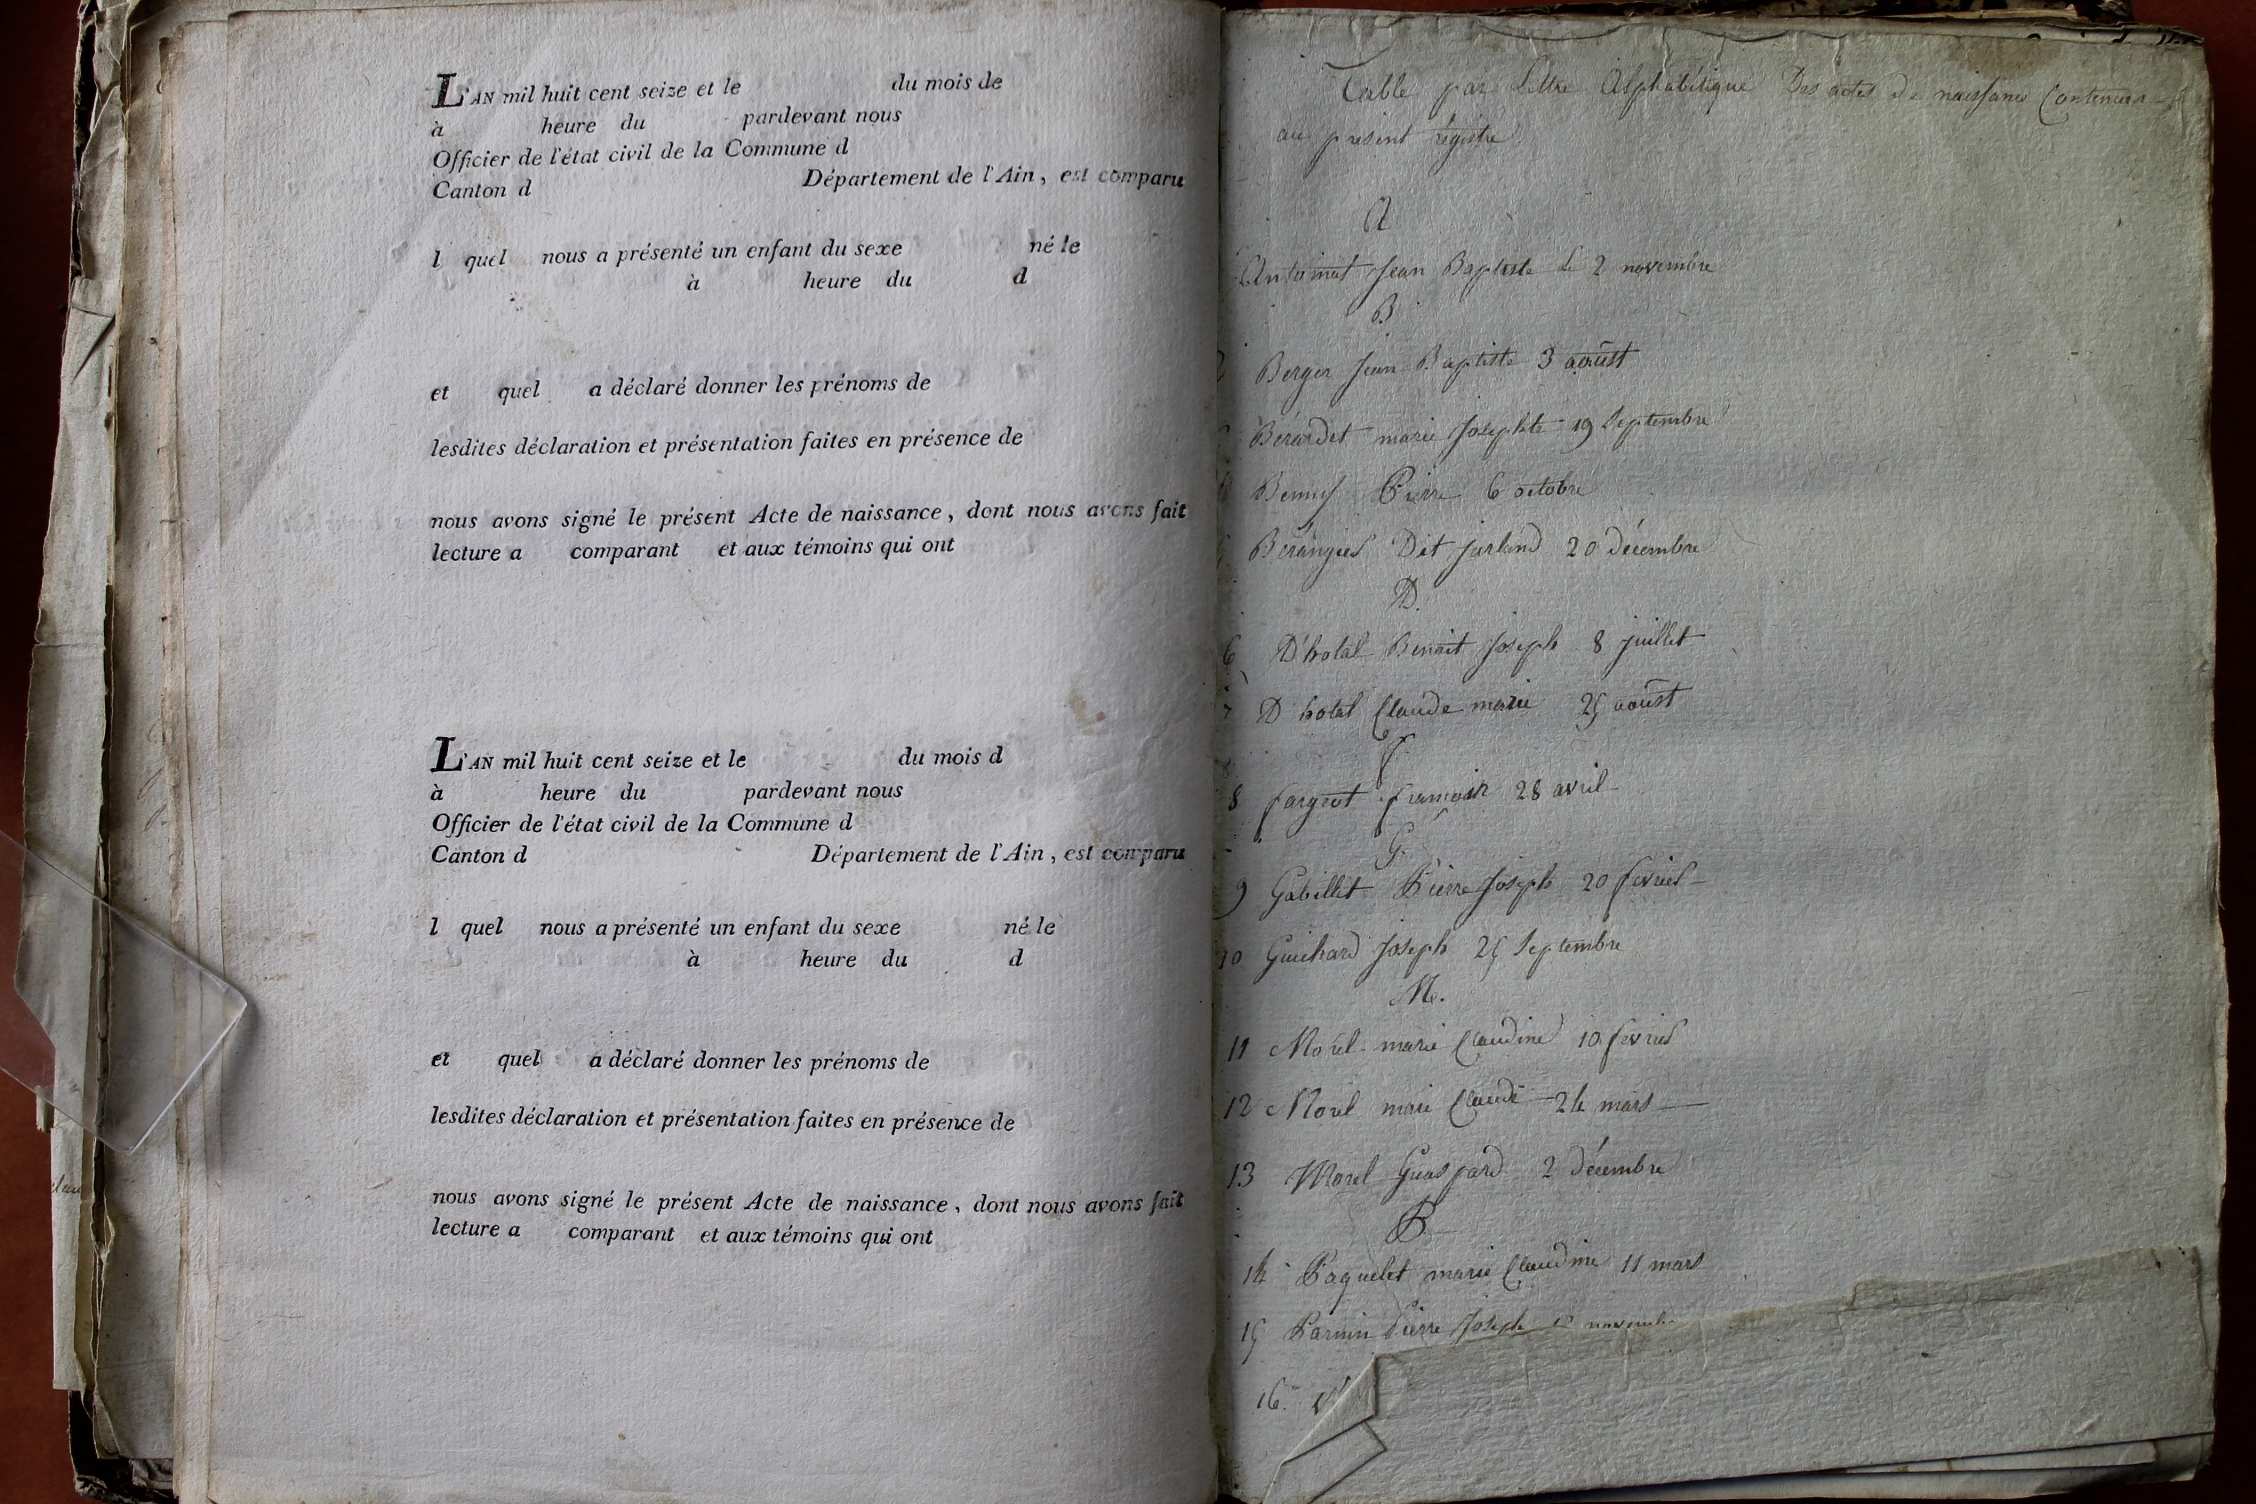 L'AN mil huit cent seize et le du mois de
à heure du pardevant nous
Officier de l'état civil de la Commune d
Canton d Département de l'Ain, est comparu
l quel nous a présenté un enfant du sexe né le
à heure du d
et quel a déclaré donner les prénoms de
lesdites déclaration et présentation faites en présence de
nous avons signé le présent Acte de naissance, dont nous avons fait
lecture a comparant et aux témoins qui ont
L'AN mil huit cent seize et le du mois d
à heure du pardevant nous
Officier de l'état civil de la Commune d
Canton d Département de l'Ain, est comparu
l quel nous a présenté un enfant du sexe né le
à heure du d
et quel a déclaré donner les prénoms de
lesdites déclaration et présentation faites en présence de
nous avons signé le présent Acte de naissance, dont nous avons fait
lecture a comparant et aux témoins qui ont
Table par Lettre Alphabétique Des actes De naissance
au présent régistre
A
Jean Baptiste le 2 novembre
B
Berger Jean Baptiste 3 aoust
Bérardet marie Josephte 19 Septembre
Pierre 6 octobre
Dit 20 décembre
D.
6 D'hotal Benoit Joseph 8 juillet
7 D hotal Claude marie 25 aoust
F
8 fargeot françois 28 avril
G.
9 Gabillet Pierre Joseph 20 fevrier
10 Guichard Joseph 25 Septembre
M.
11 Morel marie Claudine 10 fevrier
12 Morel marie Claude 24 mars
13 Morel Guaspard 2 décembre
P
14 Paquelet marie Claudine 11 mars
15 Pierre Joseph novembre
16.